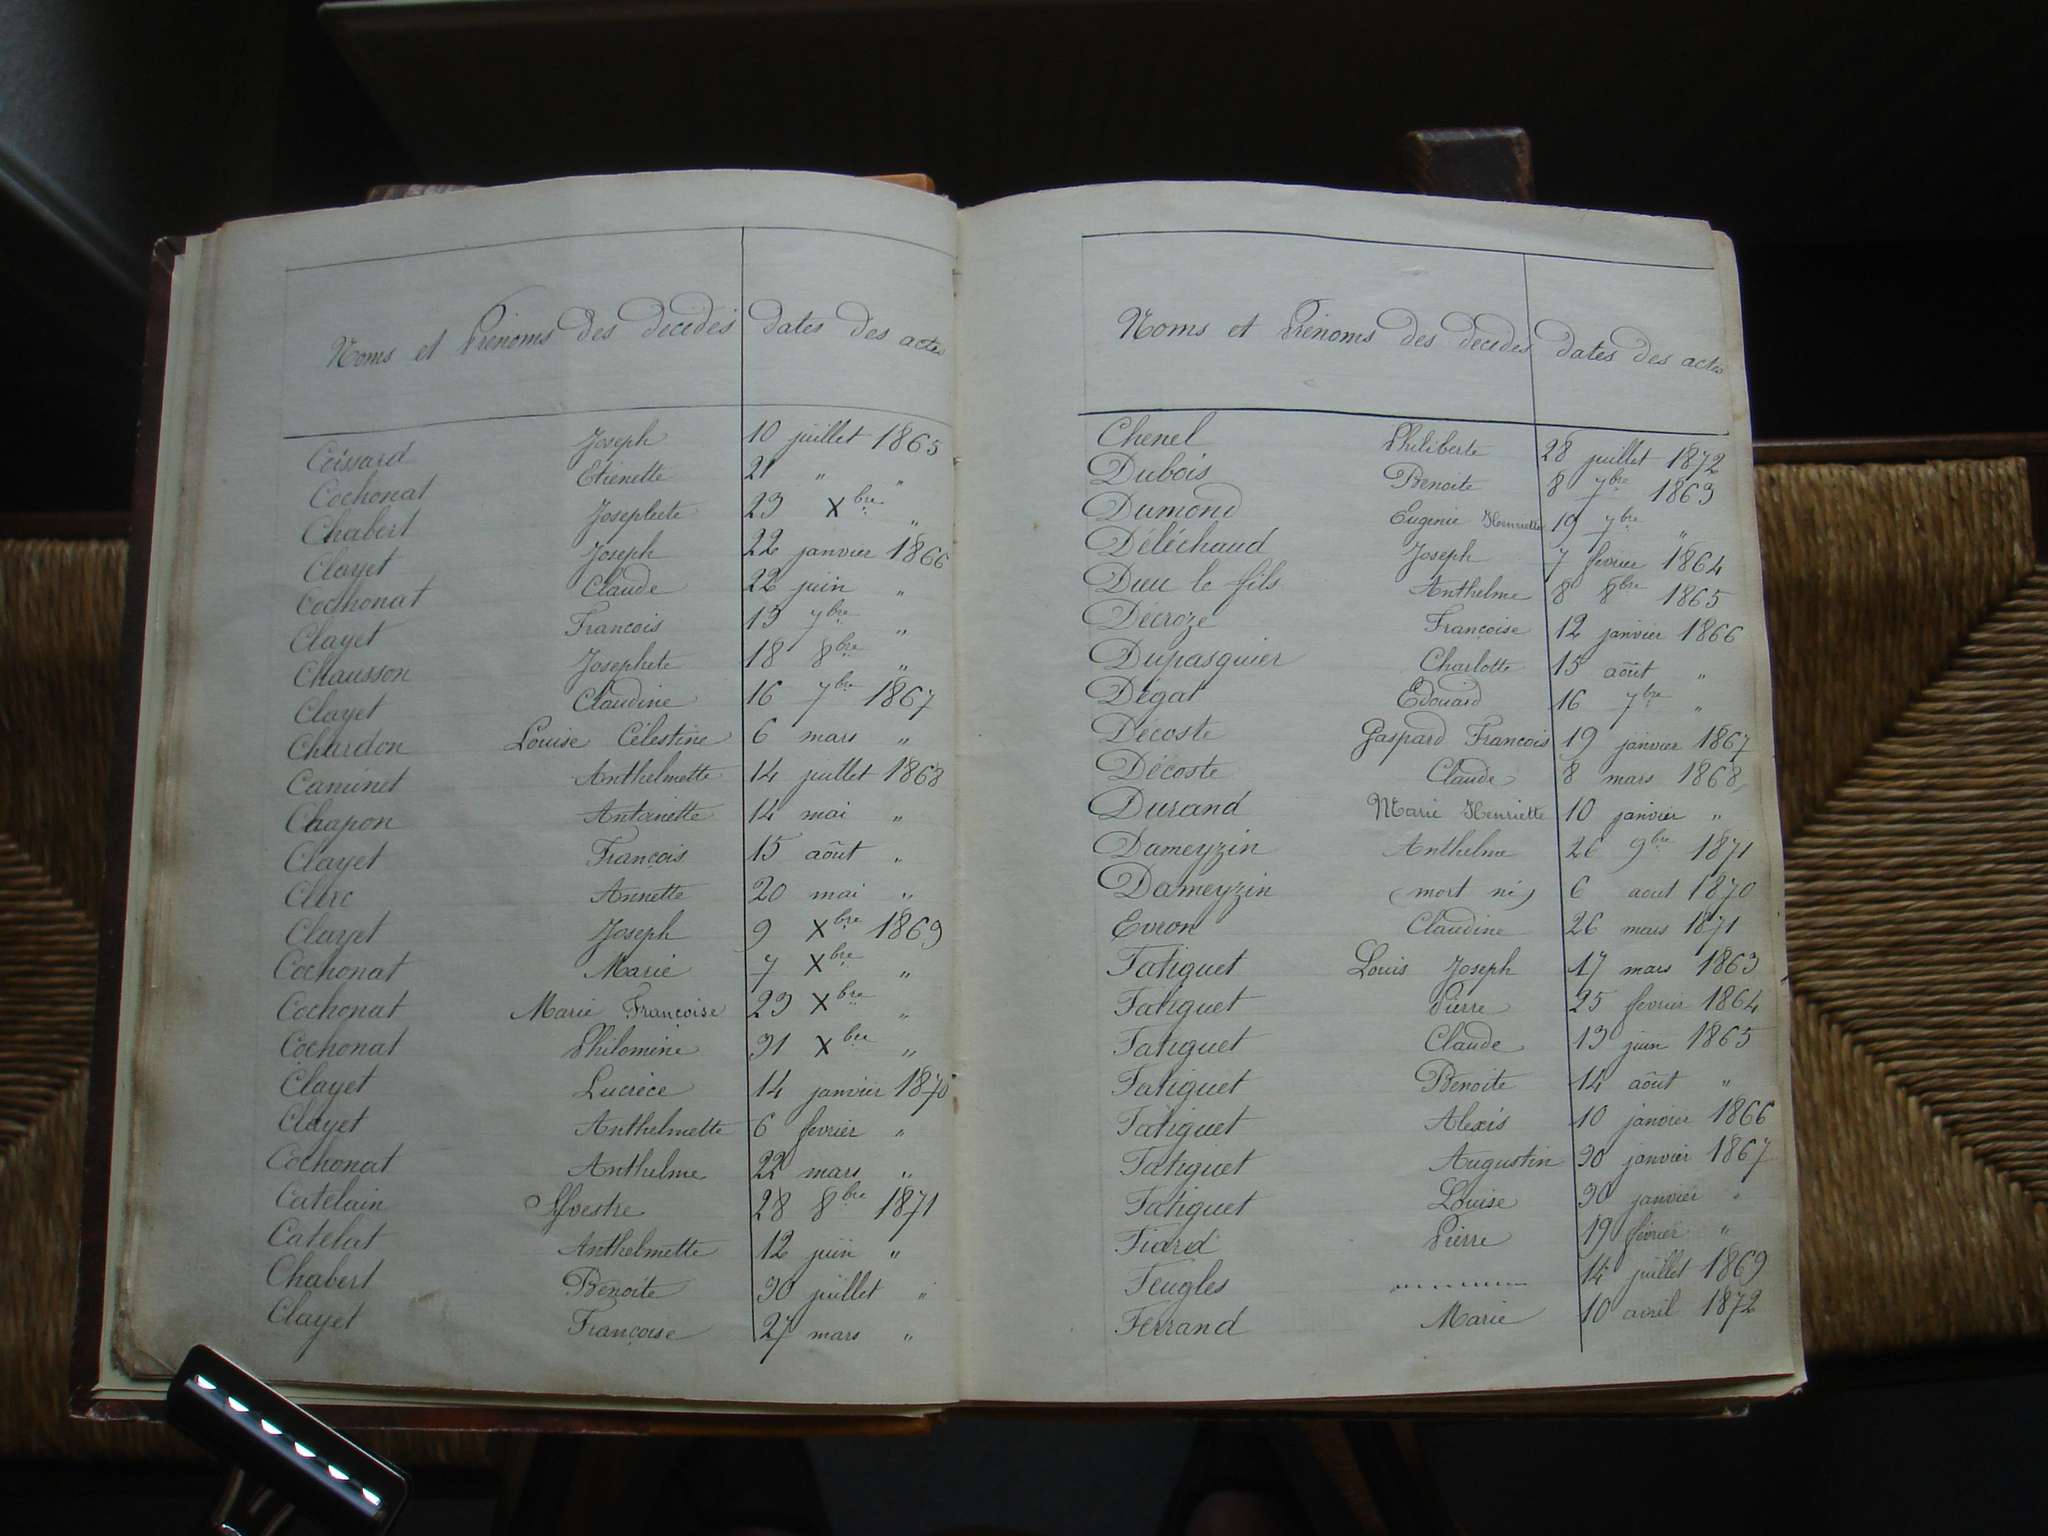 Noms et Prénoms des décédés dates des actes
Coissard Joseph 10 juillet 1865
Cochonat Etienette 21 " "
Chabert Josephete 23 Xbre "
Clayet Joseph 22 janvier 1866
Cochonat Claude 22 juin "
Clayet François 13 7bre "
Chausson Josephete 18 8bre "
Clayet Claudine 16 7bre 1867
Chardon Louise Célestine 6 mars "
Caminet Anthelmette 14 juillet 1868
Chapon Antoinette 14 mai "
Clayet François 15 août "
Clerc Annette 20 mai "
Clayet Joseph 9 Xbre 1869
Cochonat Marie 7 Xbre "
Cochonat Marie Françoise 23 Xbre "
Cochonat Philomène 31 Xbre "
Clayet Lucrèce 14 janvier 1870
Clayet Anthelmette 6 fevrier "
Cochonat Anthelme 22 mars "
Catelain Sylvestre 28 8bre 1871
Catelat Anthelmette 12 juin "
Chabert Benoite 30 juillet "
Clayet Françoise 27 mars "
Noms et Prénoms des décédés dates des actes
Chenel Philiberte 28 juillet 1872
Dubois Benoite 8 7bre 1863
Dumond Eugenie Henriette 19 7bre "
Déléchaud Joseph 7 fevrier 1864
Dieu le fils Anthelme 8 8bre 1865
Décroze Françoise 12 janvier 1866
Dupasquier Charlotte 15 août "
Dégat Edouard 16 7bre "
Décoste Gaspard François 19 janvier 1867
Décoste Claude 8 mars 1868
Durand Marie Henriette 10 janvier "
Dameyzin Anthelme 26 9bre 1871
Dameyzin (mort né) 6 aout 1870
Evron Claudine 26 mars 1871
Fatiguet Louis Joseph 17 mars 1863
Fatiguet Pierre 25 fevrier 1864
Fatiguet Claude 13 juin 1865
Fatiguet Benoite 14 août "
Fatiguet Alexis 10 janvier 1866
Fatiguet Augustin 30 janvier 1867
Fatiguet Louise 30 janvier "
Fiard Pierre 19 février "
Feugles 14 juillet 1869
Ferrand Marie 10 avril 1872